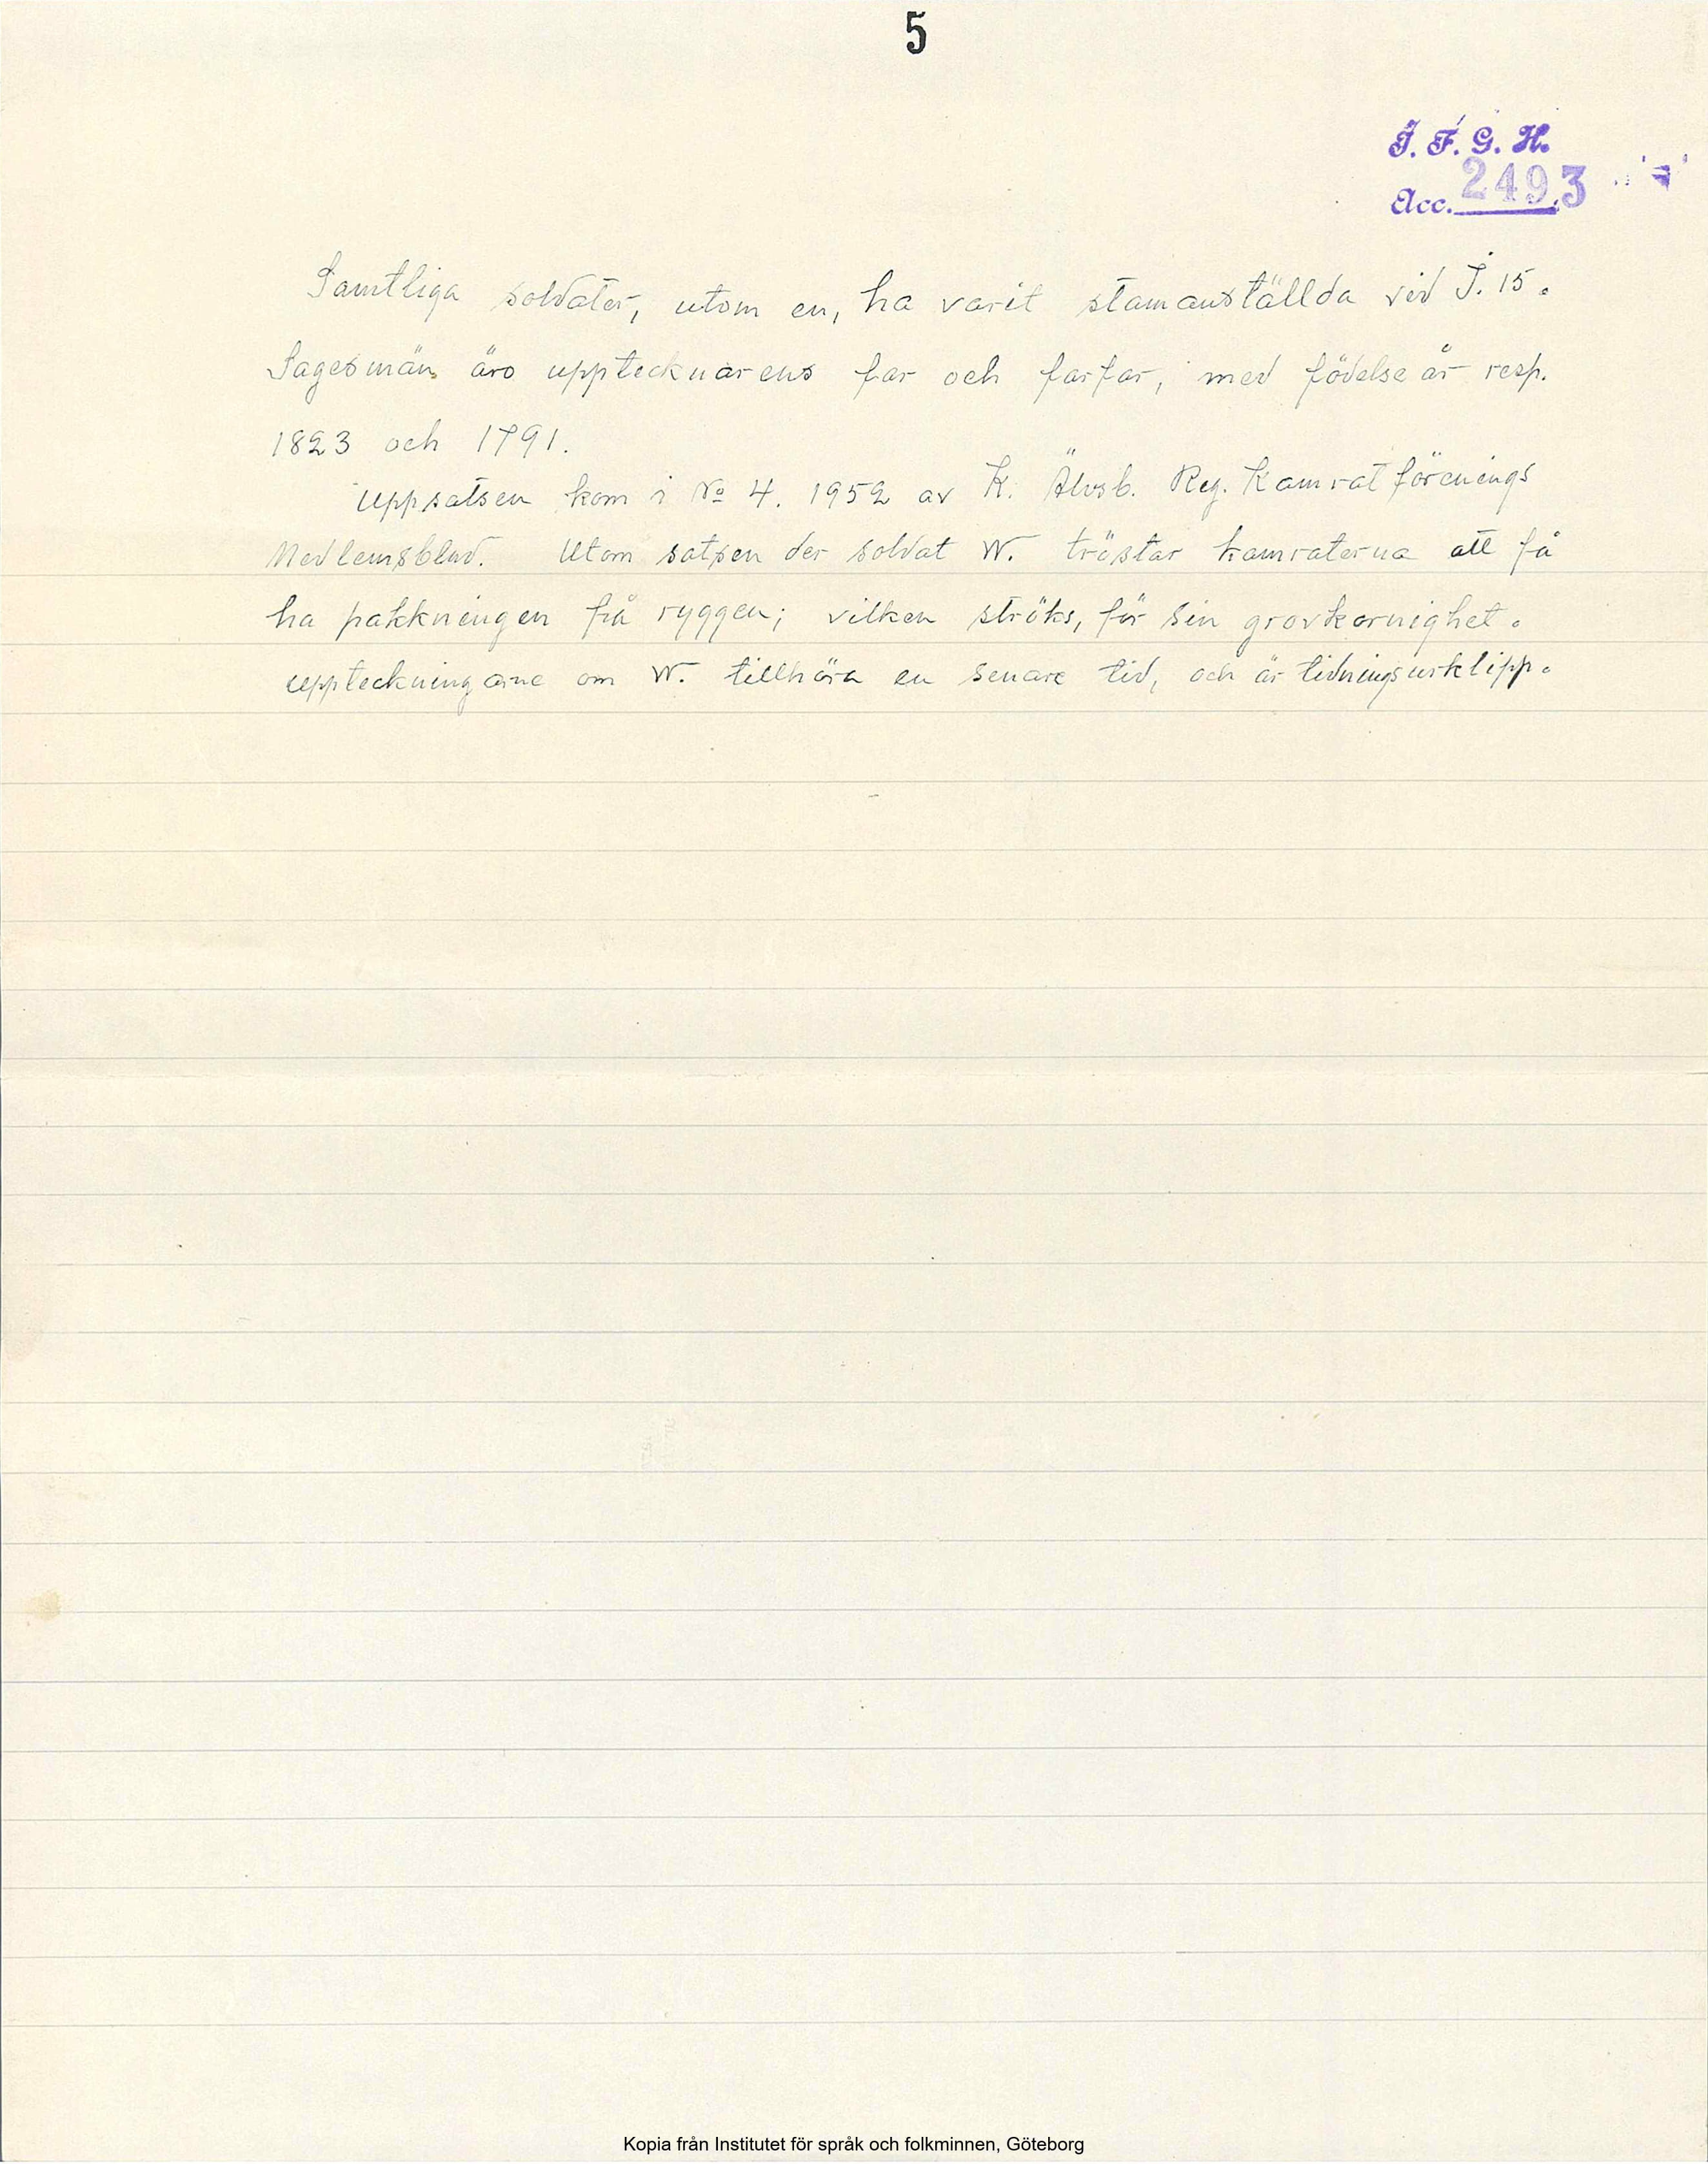 5
I. F. G. H.
Acc. 2493
Samtliga soldater, utom en, ha varit stamanställda vid I. 15.
Sagesmän äro upptecknarens far och farfar, med födelseår resp.
1823 och 1791.
Uppsatsen kom i No 4. 1952 av K. Älvsb. Reg. Kamratförenings
Medlemsblad. Utom satsen der soldat W. tröstar kamraterna att få
ha pakkningen på ryggen; vilken ströks, för sin grovkornighet.
Uppteckningarne om W. tillhöra en senare tid, och är tidningsurklipp.
Kopia från Institutet för språk och folkminnen, Göteborg